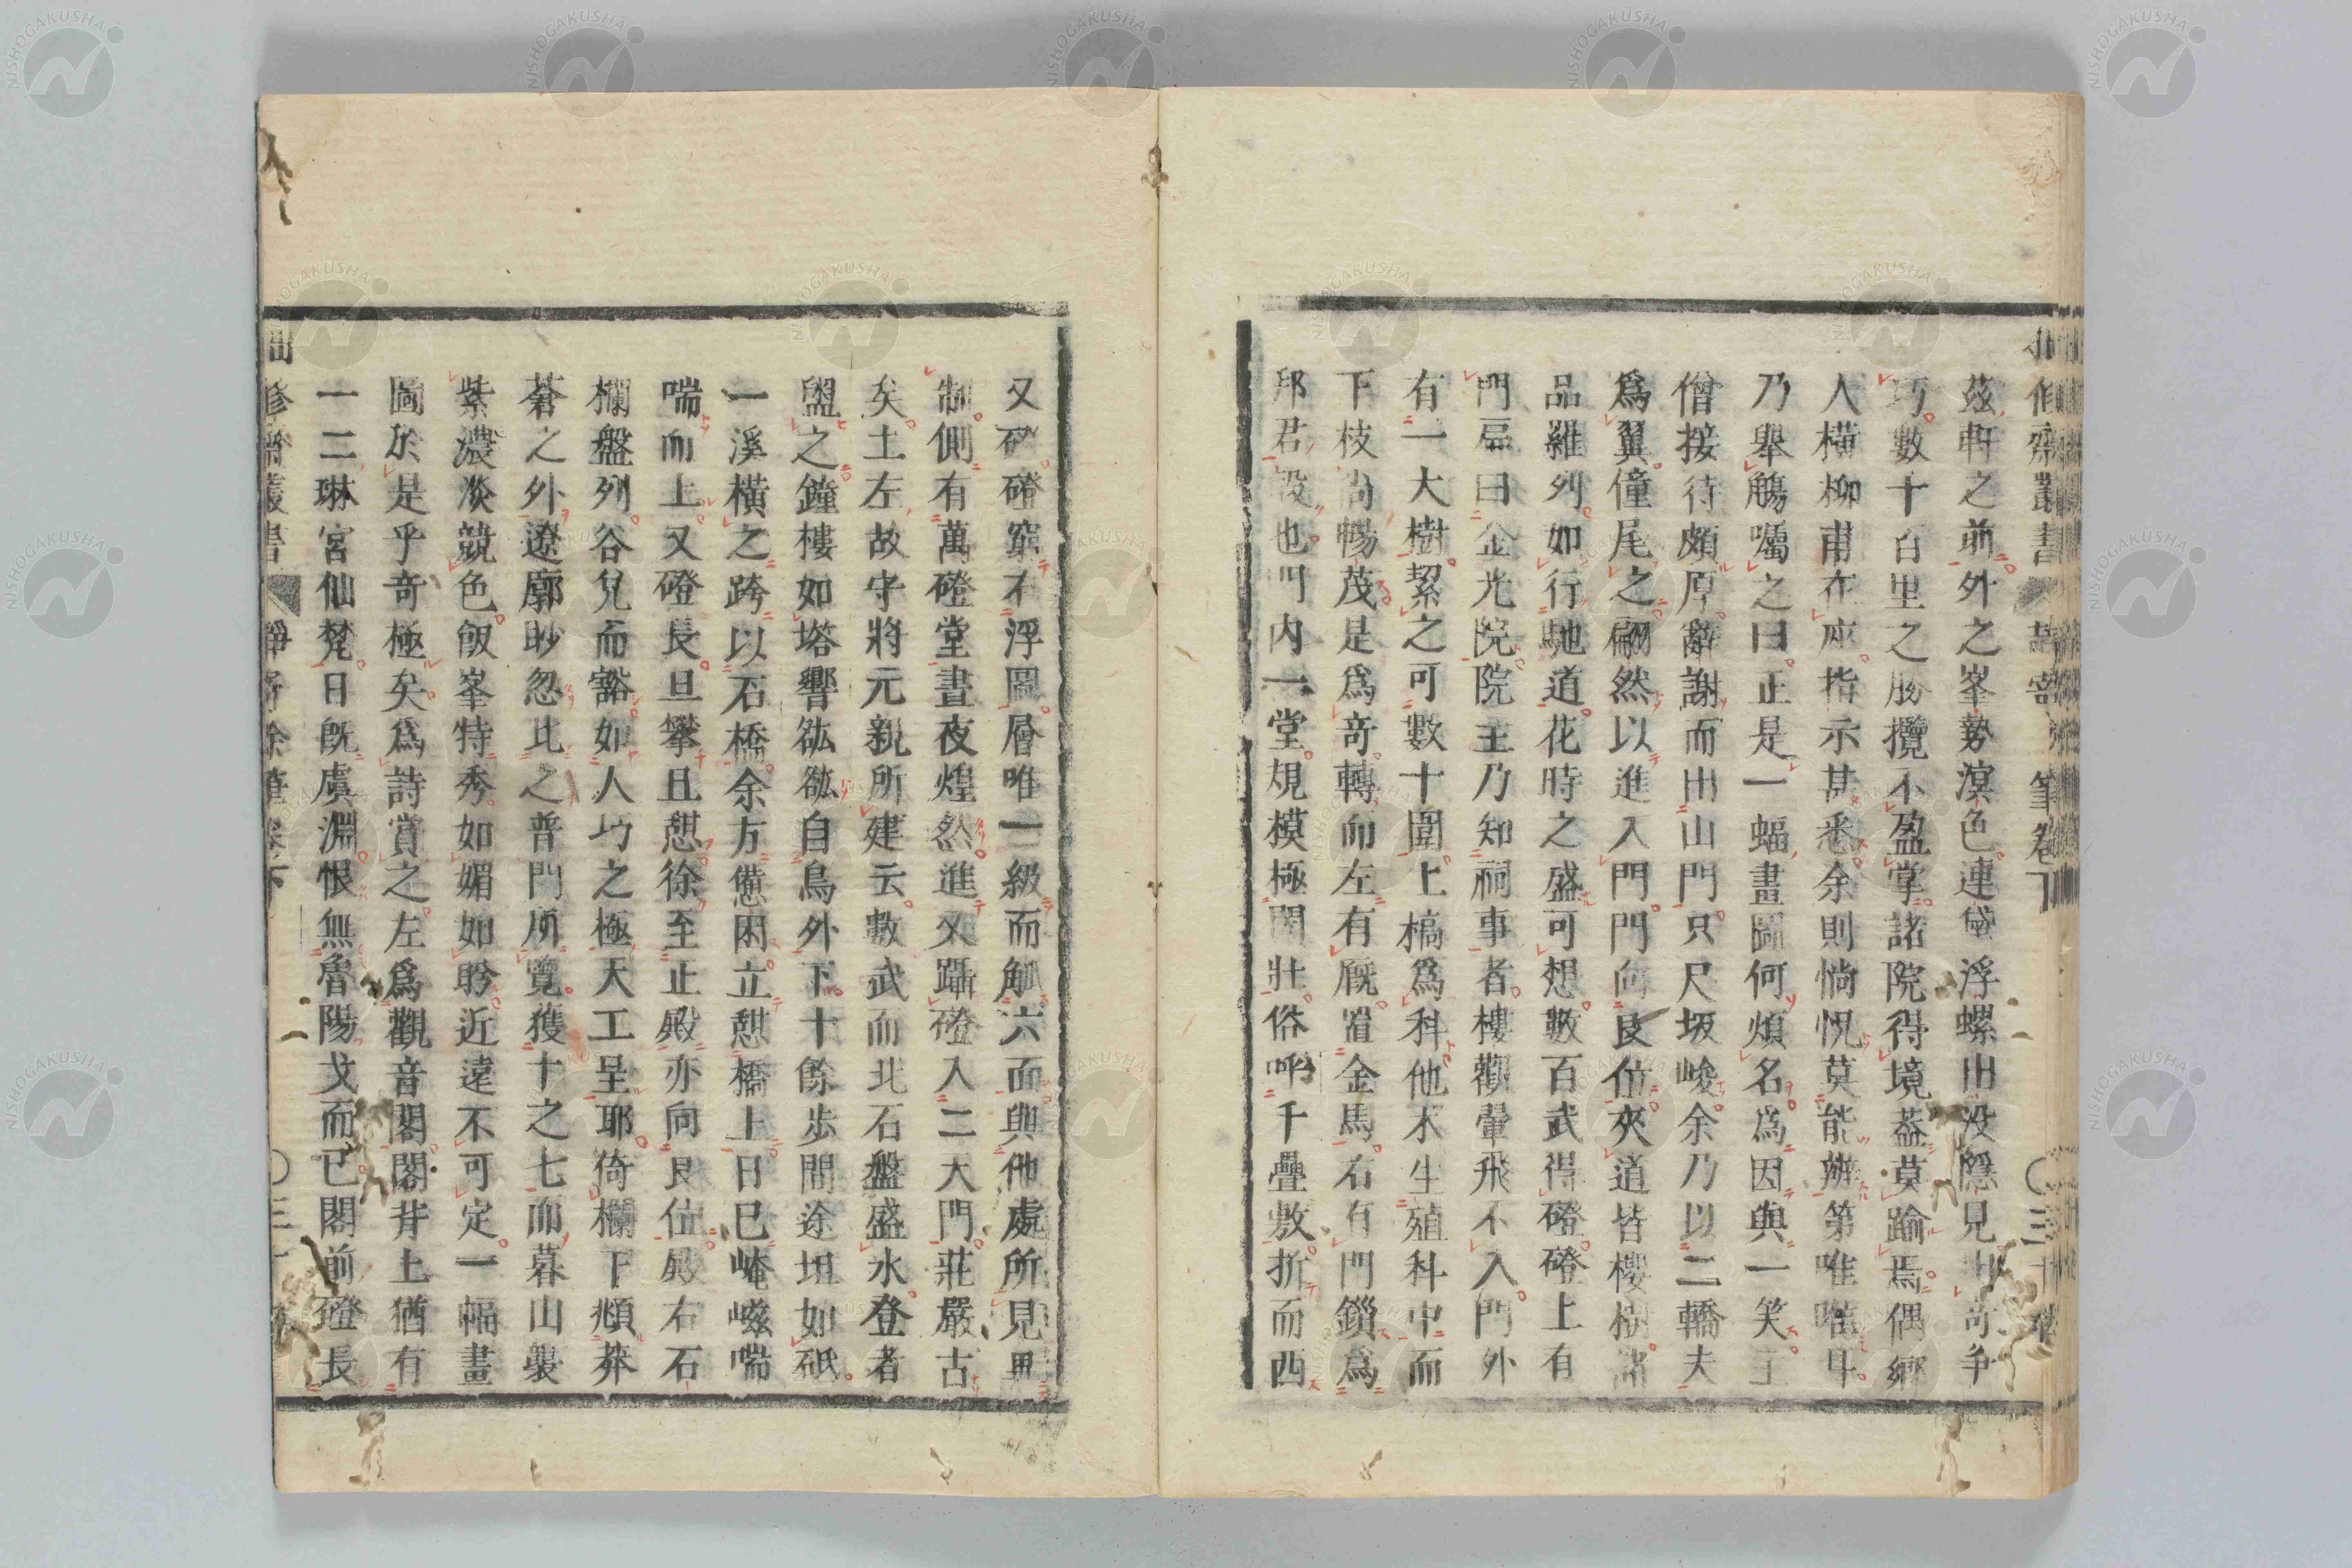 茲軒之前外之峯勢濵色連黛浮螺出没隱見出竒爭
巧數十百里之勝攬不盈掌諸院得境葢莫踰焉偶郷
人橫柳甫在座指示甚悉余則惝怳莫能辨第唯唯耳
乃舉觴囑之曰正是一幅畫圖何煩名為因與一笑
僧接待頗厚辭謝而出山門只尺坂峻余乃以二轎夫
爲翼僮尾之翩然以進入門門向艮位夾道皆櫻樹諸
品羅列如行馳道花時之盛可想數百武得磴磴上有
門扁曰金光院院主乃知祠事者樓觀翬飛不入門外
有一大樹絜之可數十圍上槁爲科他木生殖科中而
下枝尚暢茂是爲竒轉而左有厩置金馬右有門鎻爲
邱君毀也門内一堂規模極閎壯俗呼千疊敷折而西
又破磴窮不浮圖層唯一級而觚六面與他處所見異
制側有萬磴堂晝夜煌然進又躡磴入二天門莊嚴古
矣土左故守將元親所建云數武而北石盤盛水登者
盥之鐘樓如塔響谹谹自鳥外下十餘步間途坦如砥
一溪橫之跨以石橋余方憊困立憇橋上日巳崦嵫喘
喘而上又磴長且攀且憇徐至止殿亦向艮位殿右石
欄盤列谷皃而豁如人巧之極天工呈耶倚欄下頫莽
蒼之外遼廓眇忽比之普門所覽獲十之七而暮山襲
紫濃淡競色飯峯特秀如媚如盼近遠不可定一幅畫
圖於是乎竒極矣爲詩賞之左爲觀音閣閣背上猶有
一二琳宮仙梵日旣虞淵恨無魯陽戈而已閣前磴長